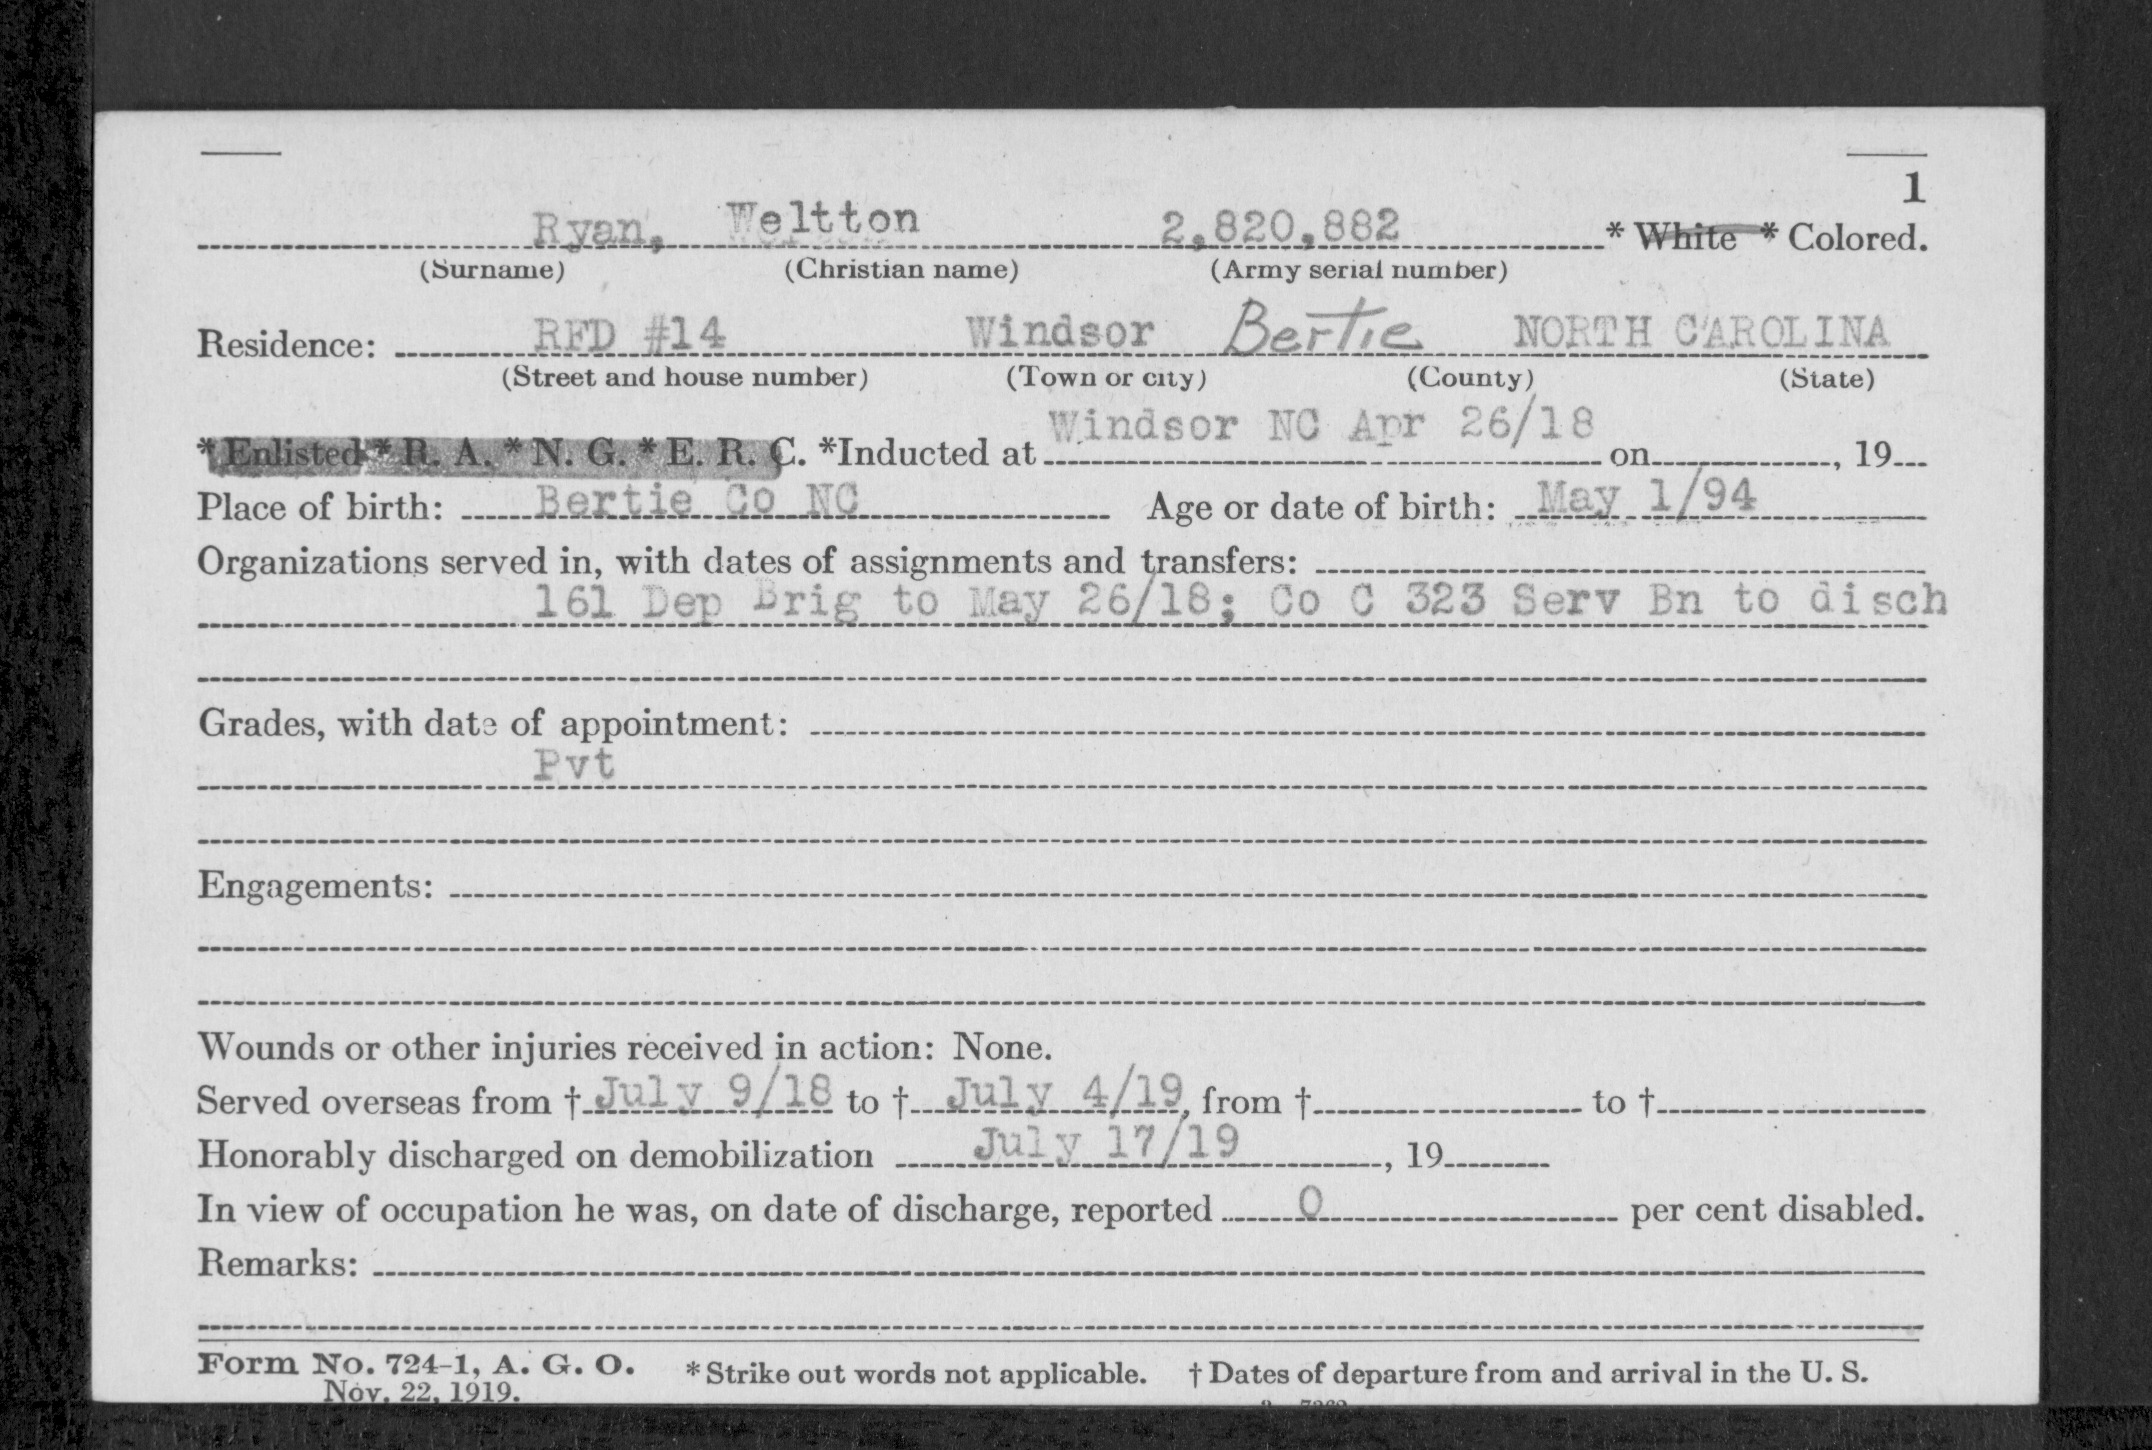 1
Ryan, Weltton 2,820,882 * White * Colored.
(Surname) (Christian name) (Army serial number)
Residence: RFD #14 Windsor Bertie NORTH CAROLINA
(Street and house number) (Town or city) (County) (State)
Windsor NC Apr 26/18
* Enlisted * R. A. * N. G. * E. R. C. *Inducted at on , 19
Place of birth: Bertie Co NC Age or date of birth: May 1/94
Organizations served in, with dates of assignments and transfers:
161 Dep Brig to May 26/18; Co C 323 Serv Bn to disch
Grades, with date of appointment:
Pvt
Engagements:
Wounds or other injuries received in action: None.
Served overseas from † July 9/18 to † July 4/19, from † to †
Honorably discharged on demobilization July 17/19, 19
In view of occupation he was, on date of discharge, reported 0 per cent disabled.
Remarks:
Form No. 724-1, A. G. O. * Strike out words not applicable. † Dates of departure from and arrival in the U. S.
Nov. 22, 1919.